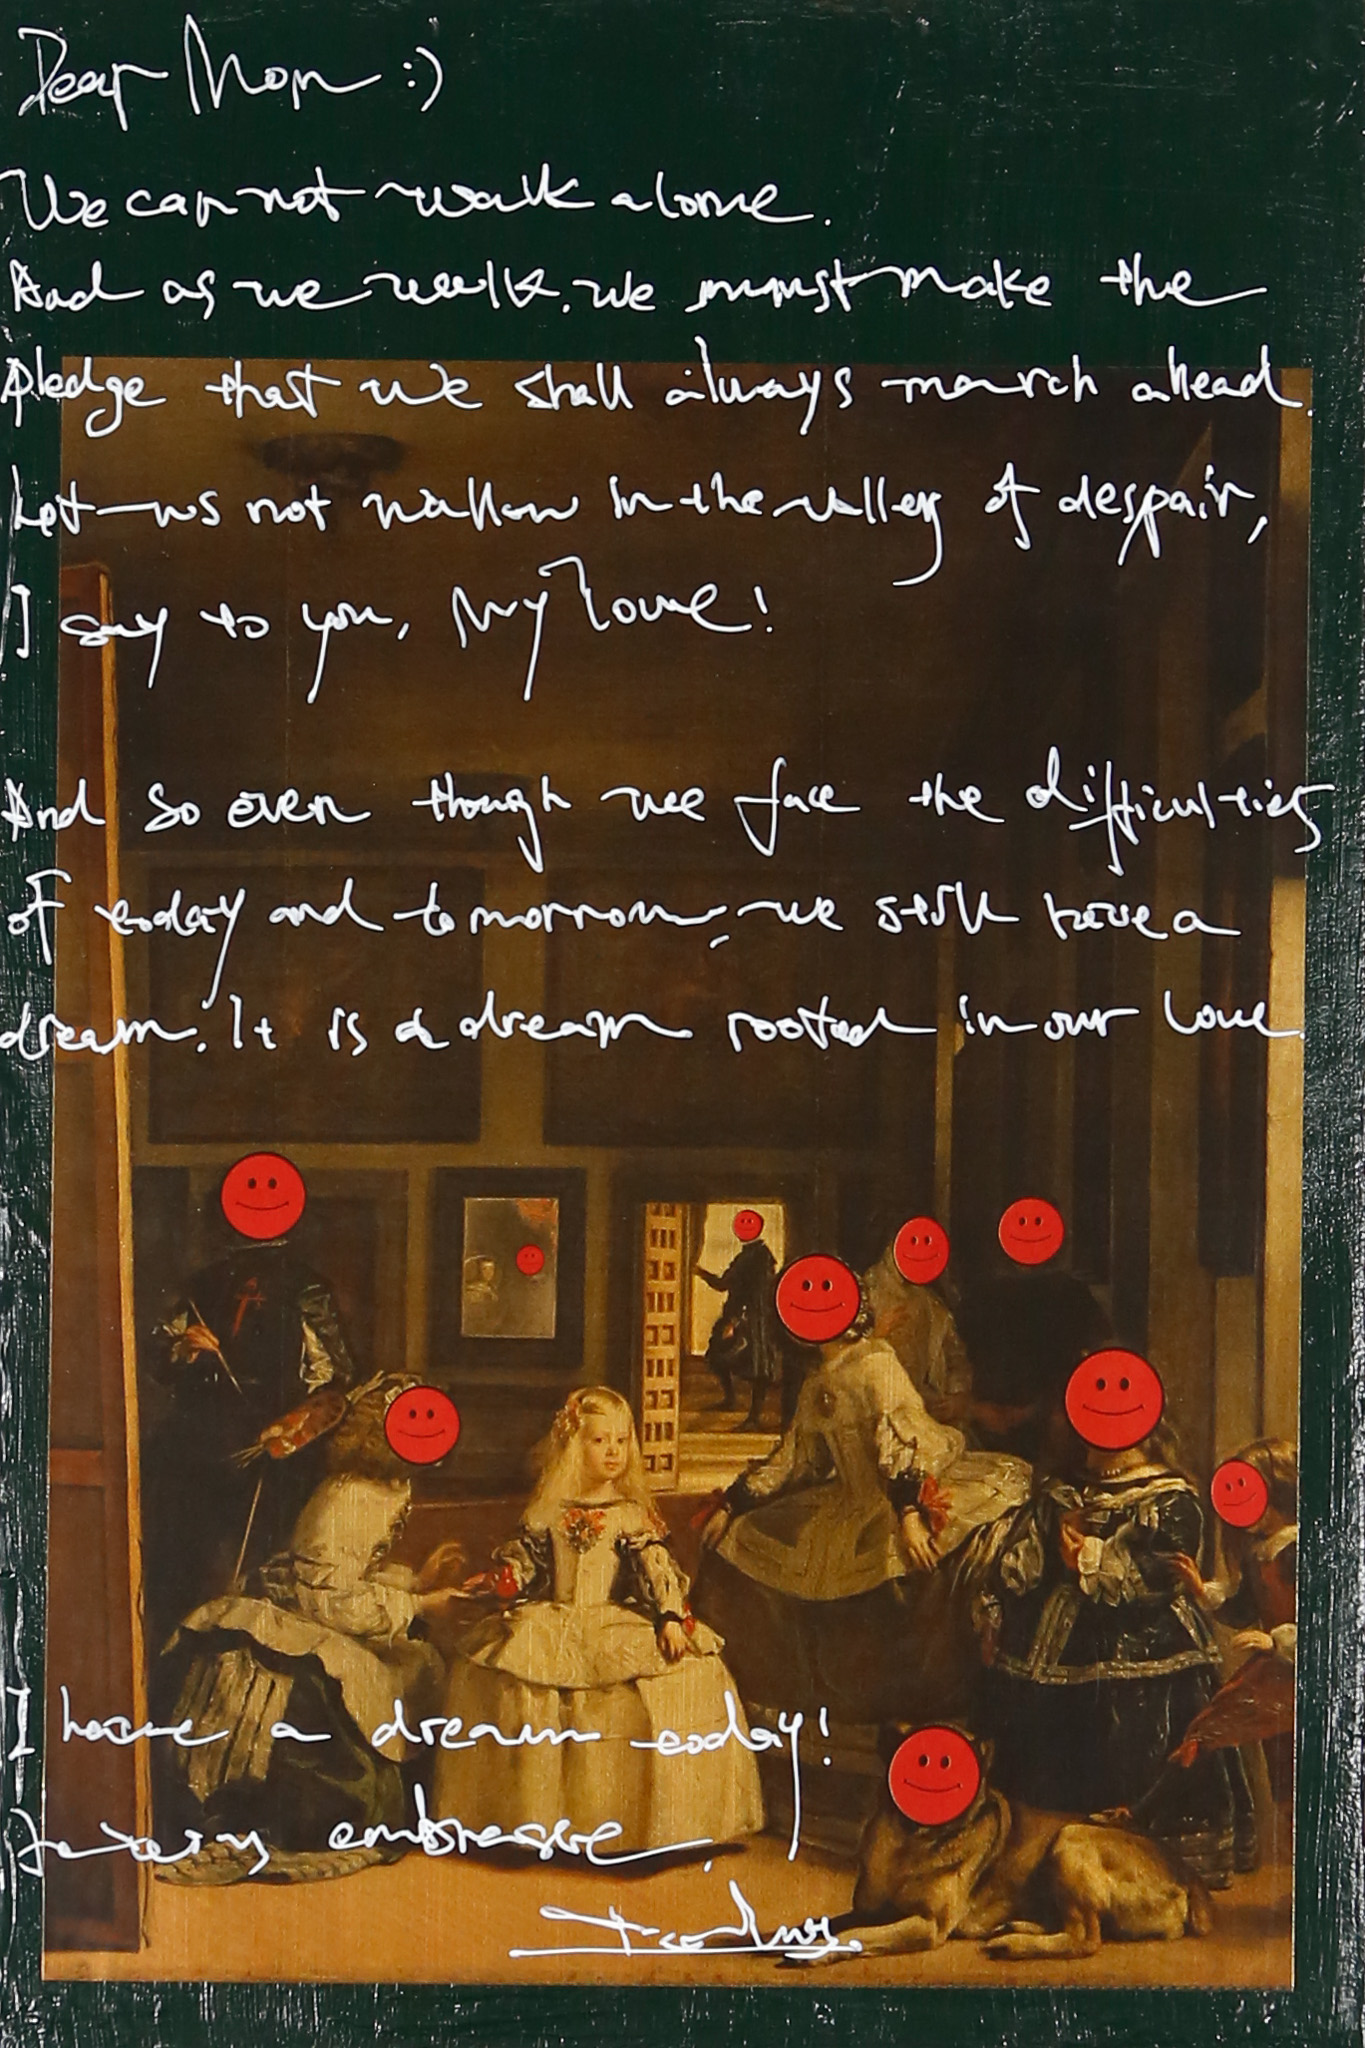 Dear Mom :)
We can not walk alone.
And as we walk, we must make the
pledge that we shall always march ahead.
Let us not wallow in the valley of despair,
I say to you, My love!
And so even though we face the difficulties
of today and tomorrow, we still have a
dream. It is a dream rooted in our love.
I have a dream today!
embrasse.